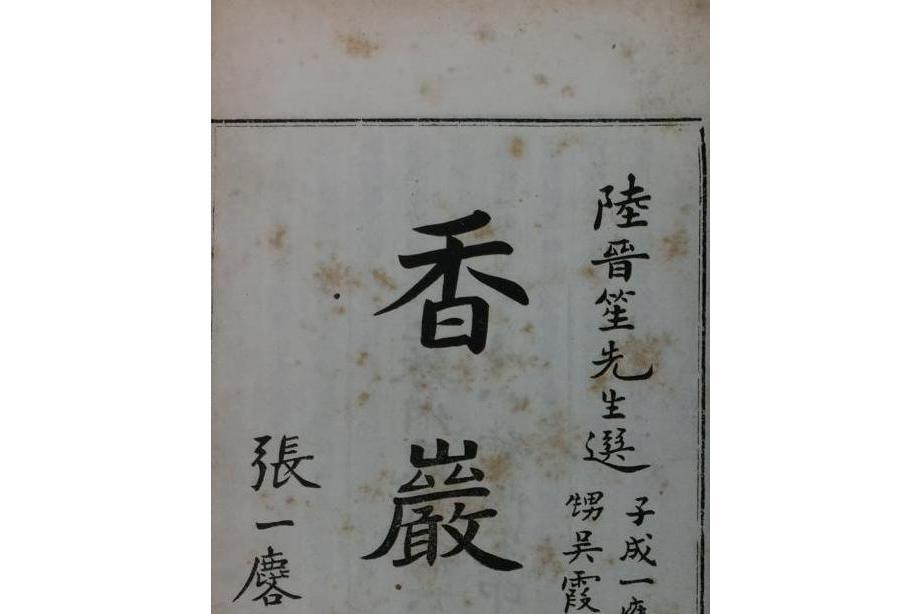 陸晉笙先生選
子成一
甥吳霞
香巖
張一麐